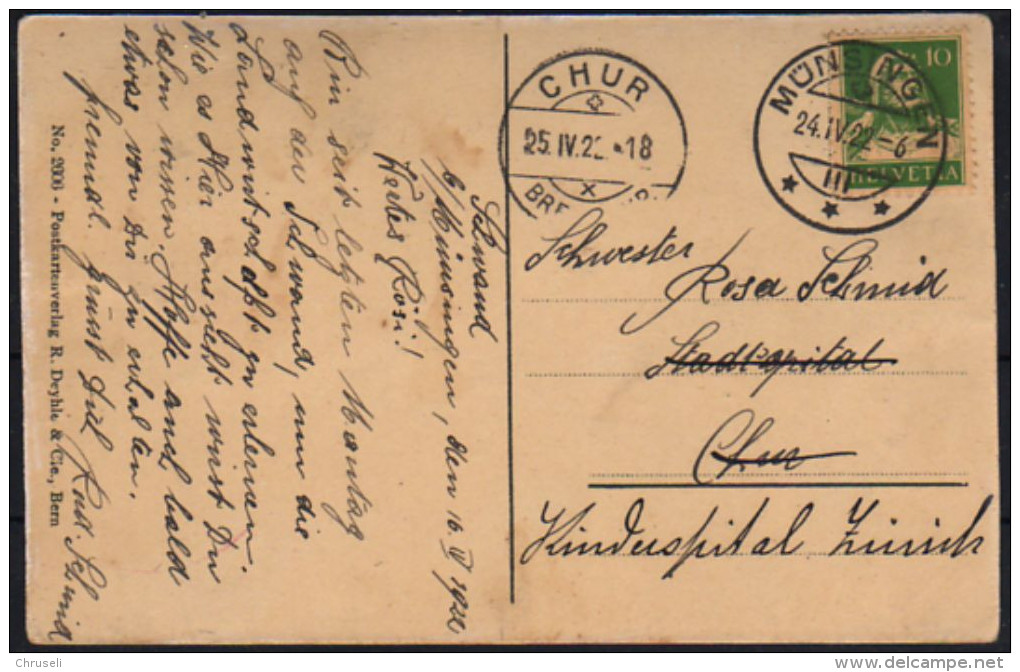 Schwand
b/Münsingen, den 16. IV 1922
Wertes Rosi!
Bin seit letzten Montag
auf der Schwand, um die
Landwirtschaft zu erlernen.
Wie es hier aussieht wirst Du
schon wissen. Hoffe auch bald
etwas von Dir zu erhalten.
freundl. Grüsst Dich Rud. Schmid
No. 2006 - Postkartenverlag R. Deyhle & Cie., Bern
CHUR
25.IV.22 -18
MÜNSINGEN
24.IV.22 -6
III
10
HELVETIA
Schwester
Rosa Schmid
Stadtspital
Chur
Kinderspital Zürich
Chruseli
www.delcampe.net